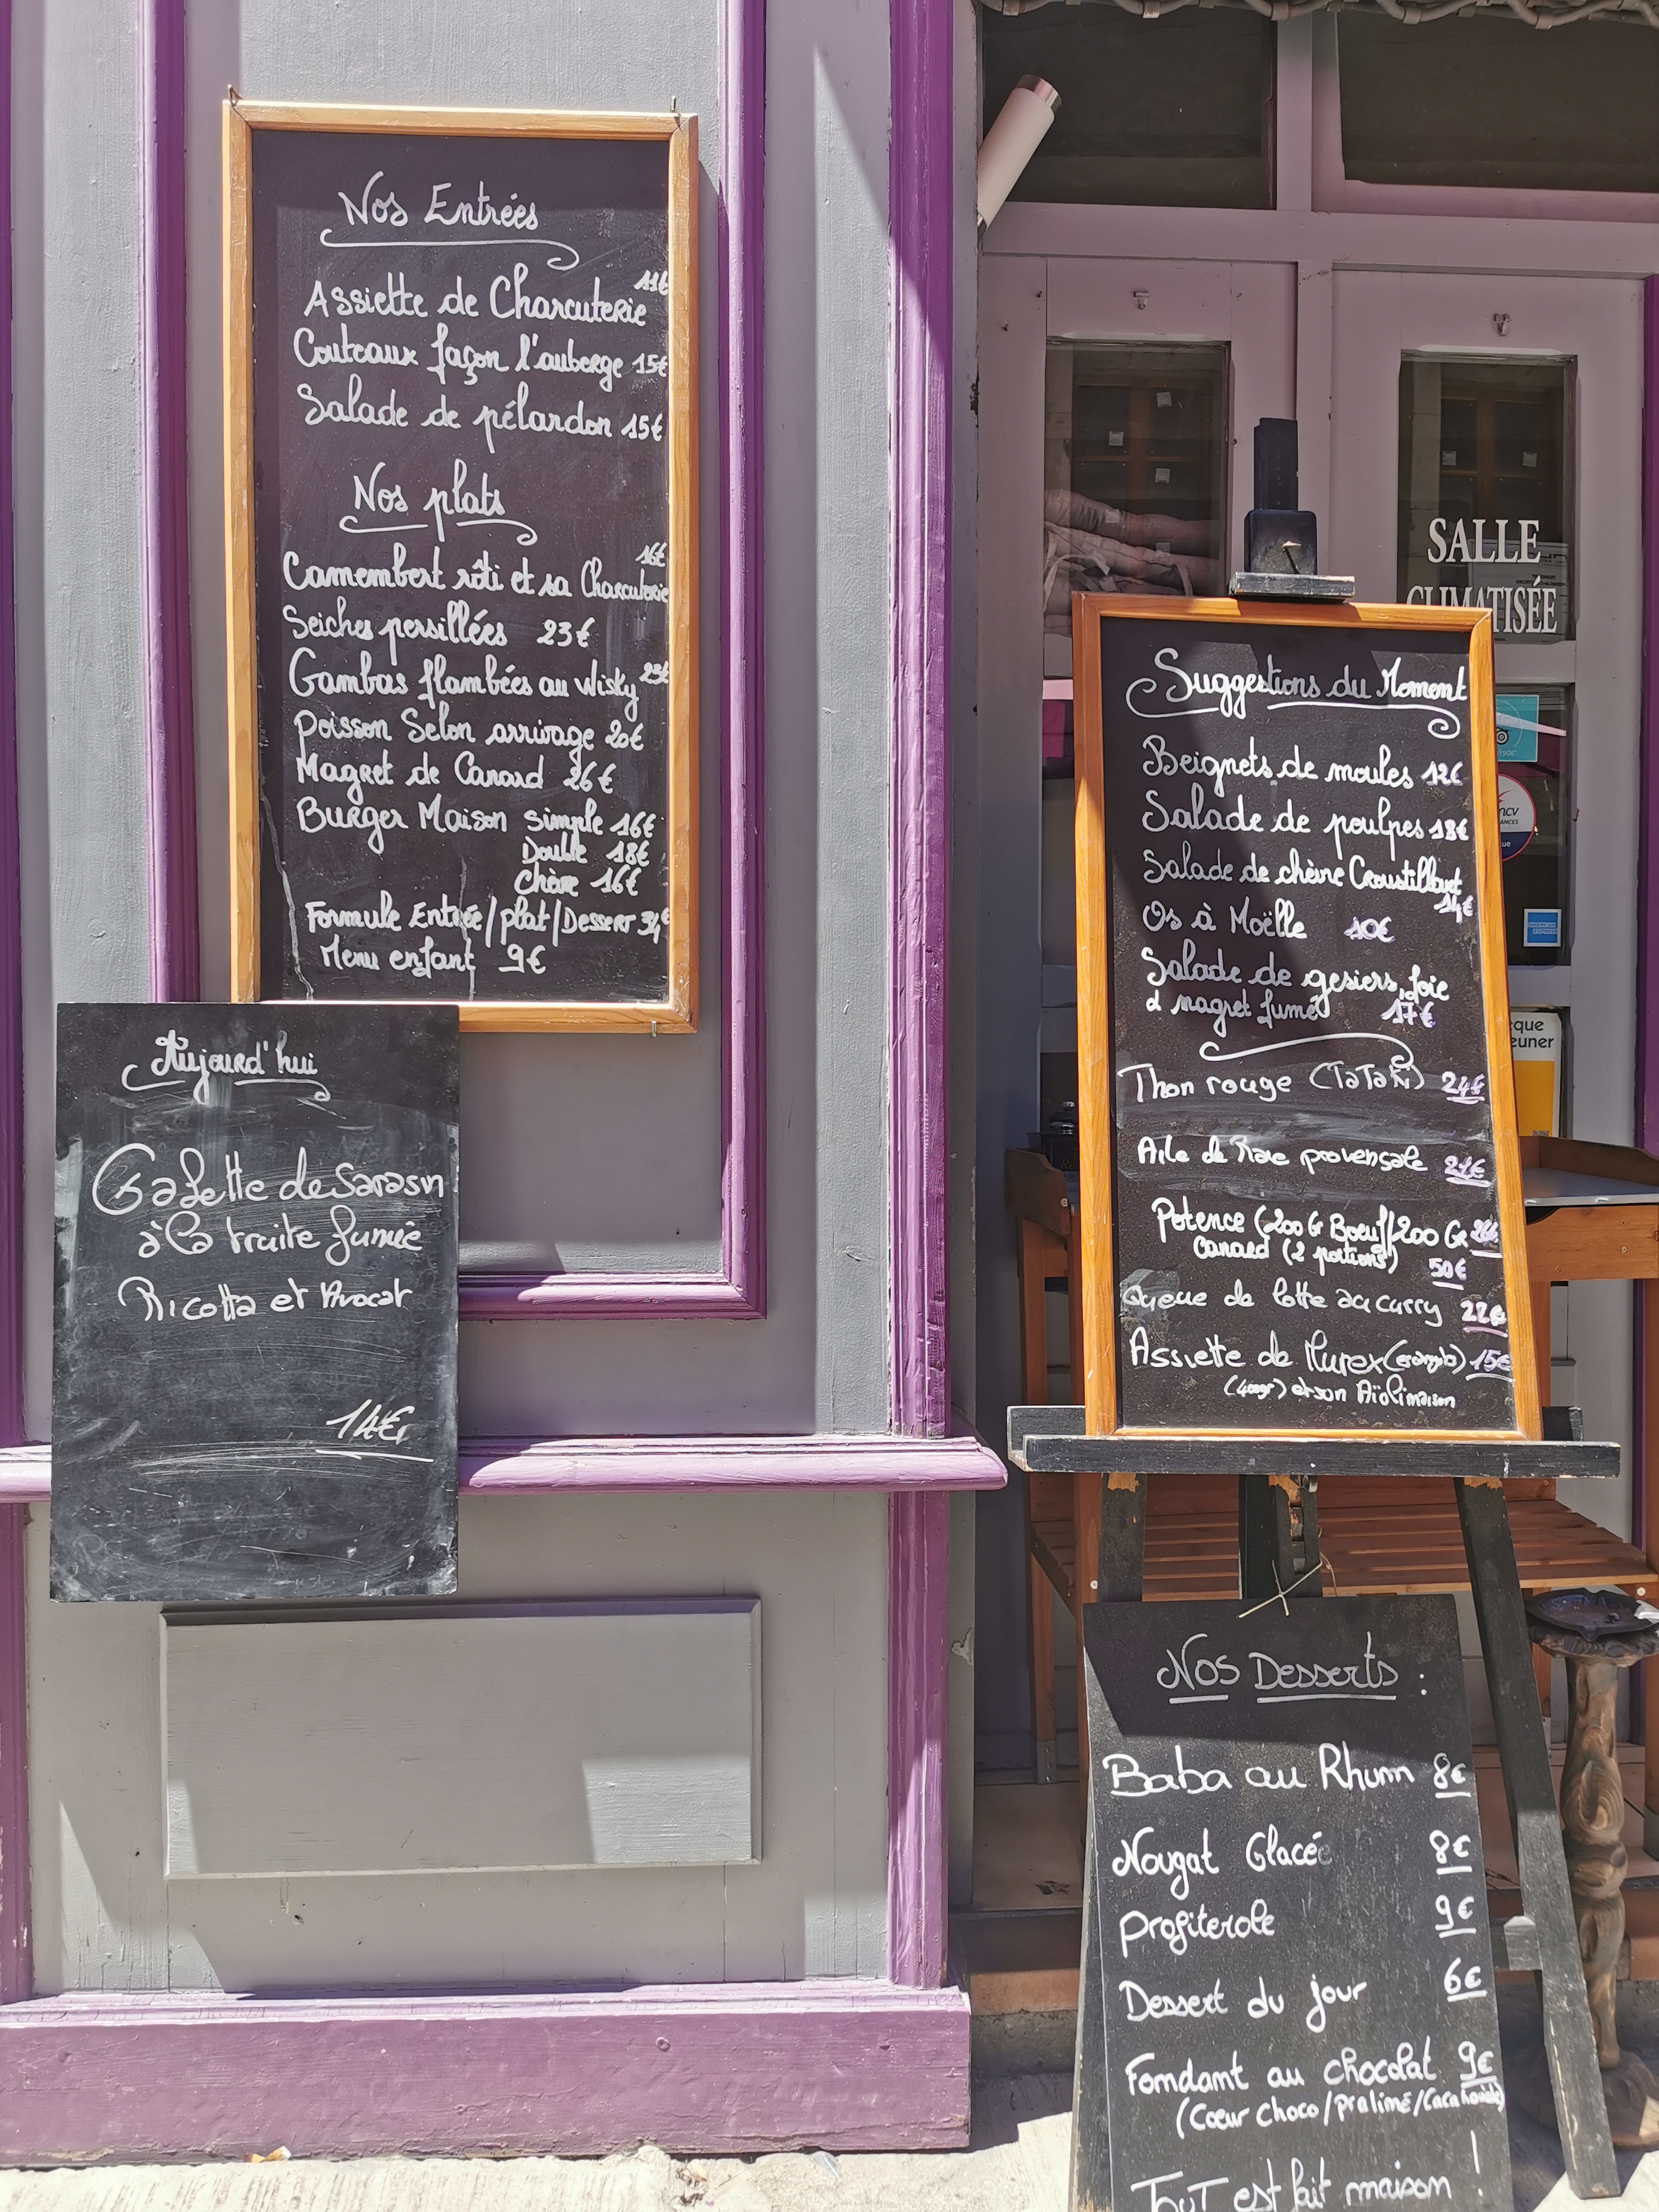 Nos Entrées
Assiette de Charcuterie 11€
Couteaux façon l'auberge 15€
Salade de pélardon 15€
Nos plats
Camembert rôti et sa Charcuterie 16€
Seiches persillées 23€
Gambas flambées au Wisky 23€
Poisson Selon arrivage 20€
Magret de Canard 26€
Burger Maison Simple 16€
Double 18€
Chèvre 16€
Formule Entrée/plat/Dessert 34€
Menu enfant 9€
Aujourd'hui
Galette de Sarasin
à la truite fumée
Ricotta et Avocat
14€
SALLE
CLIMATISÉE
Suggestions du Moment
Beignets de moules 12€
Salade de poulpes 18€
Salade de chèvre Croustillant
14€
Os à Moëlle 10€
Salade de gesiers, foie
et magret fumé 17€
Thon rouge (TaTaki) 24€
Aile de Raie provençale 21€
Potence (200 Gr Boeuf/200 Gr
Canard (2 portions) 50€
Queue de lotte au curry 22€
Assiette de Murex 15€
(400gr) et son Aïoli maison
ncv
ANCES
AMERICAN
EXPRESS
que
euner
Nos Desserts :
Baba au Rhum 8€
Nougat Glacé 8€
Profiterole 9€
Dessert du jour 6€
Fondant au chocolat 9€
(Cœur choco/praliné/Cacahouète)
TOUT est fait maison !